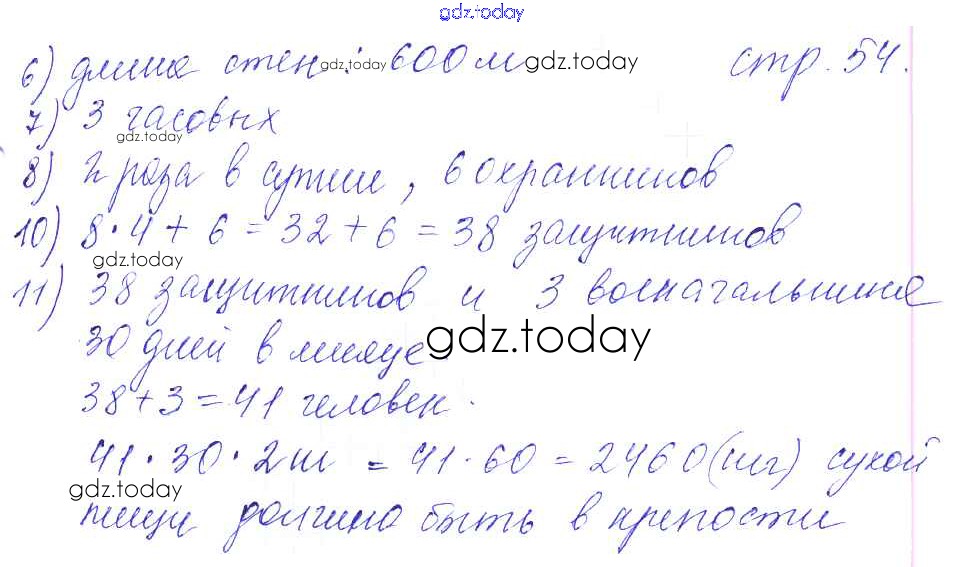 gdz.today
6) длина стен : gdz.today 600 м gdz.today стр. 54.
7) 3 часовых
gdz.today
8) 2 раза в сутки, 6 охранников
10) 8·4 + 6 = 32 + 6 = 38 защитников
gdz.today
11) 38 защитников и 3 военачальника
30 дней в месяце gdz.today
38 + 3 = 41 человек.
41 · 30 · 2 кг = 41 · 60 = 2460 (кг) сухой
gdz.today
пищи должно быть в крепости